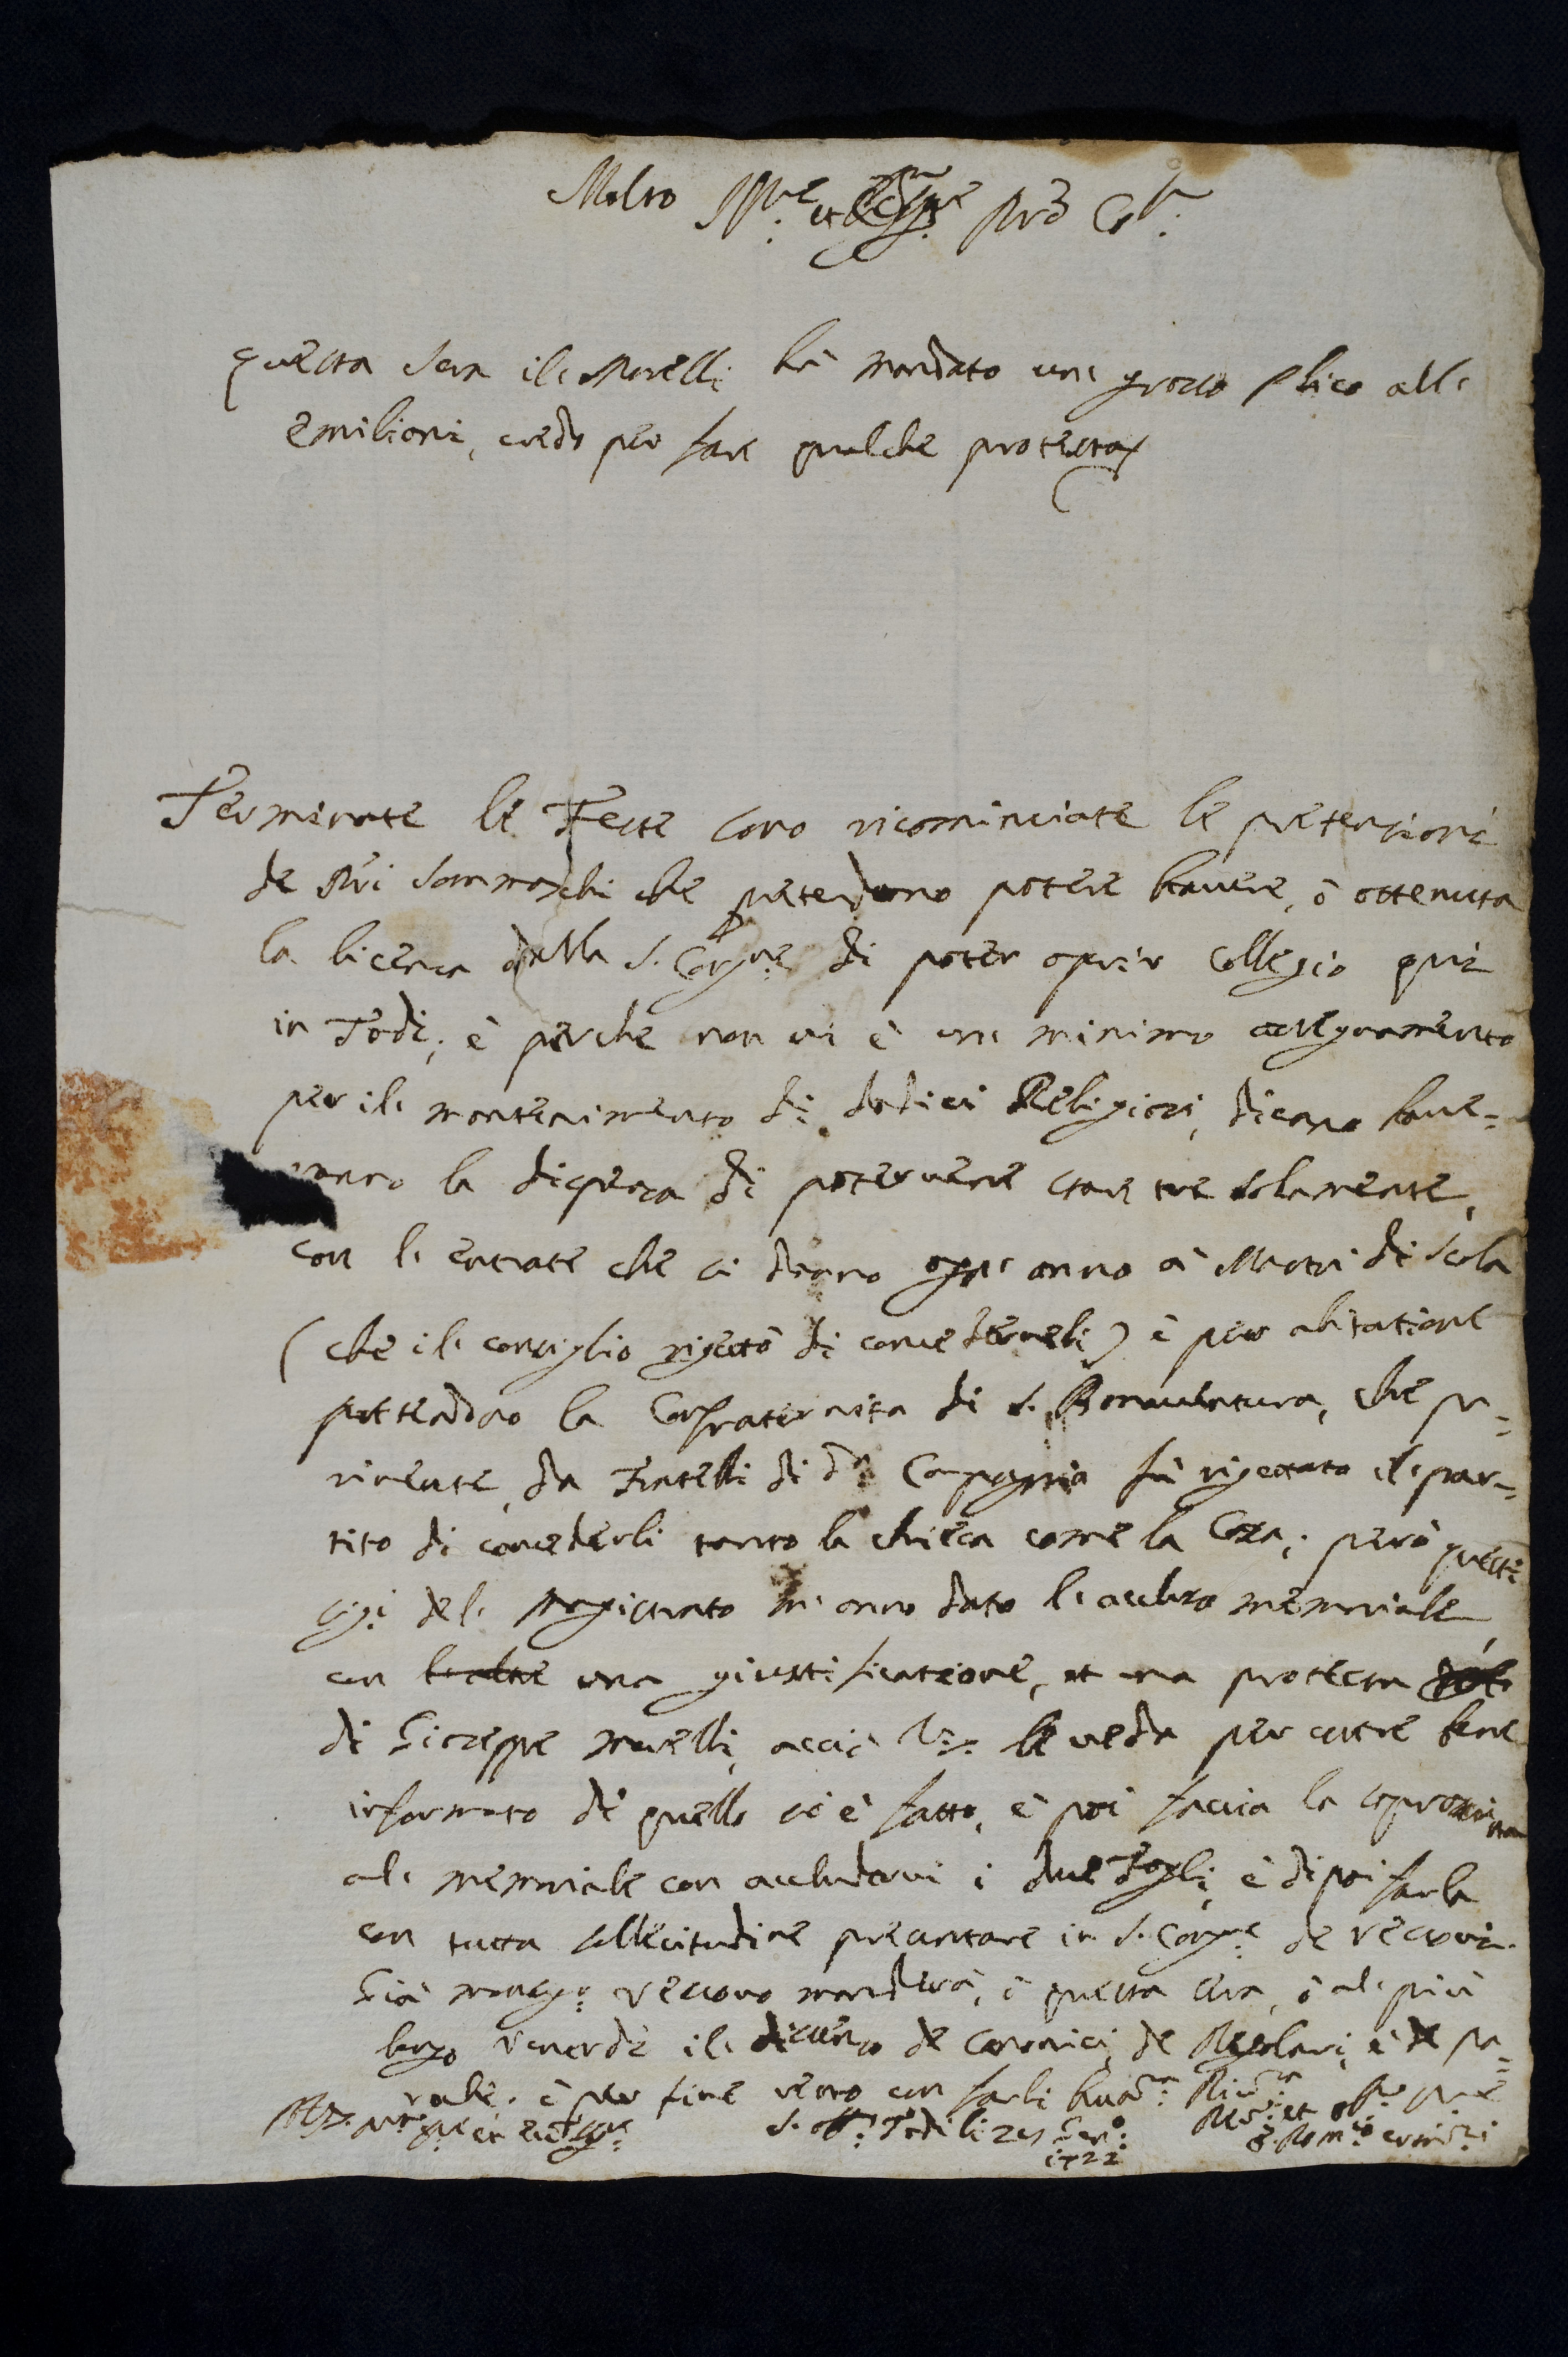 Molto Ill:re et Pró Col:
questa sera il Morelli hà mandato un grosso plico all
emilioni, credo per fare qualche protesta
Terminate le Feste sono ricominciate le pretensioni
de PPri Sommaschi che pretendono potere havere, ò ottenuta
la licenza dalla S. Cong:ne di poter oprir Collegio qui
in Todi, è perche non vi è un minimo assegnamento
per il mantenimento di dodici Religiosi, dicano have=
ranno la dispensa di potervene stare tre solamente,
con l entrate che si danno ogn anno à Mastri di Scola
(che il consiglio rigettò di concederneli) è per abitatione
pettendano la Confraternita di S. Bonauentura, che pa=
rimente, da Fratelli di d:a Compagnia fù rigettato il par=
tito di concederli tanto la chiesa come la Casa; però questi
sig:i del Magistrato m anno dato l accluso memoriale
con le altre una giustificatione, et una protesta
di Gioseppe Morelli, acciò V:S: le veda per essere bene
informato di quello si è fatto, è poi faccia la soprascritta
al memoriale con accludervi i due Fogli, è dipoi farla
con tutta sollecitudine presentare in S. Cong:ne de Vescovi.
Già Monsig:r Vescovo manderà, ò questa sera, ò al più
longo Venerdì il dissenso de Canonici, de Regolari, è de pa=
rochi. è per fine resto con farli hum:a Riu:za
Todi li 21 Gen:o
1722